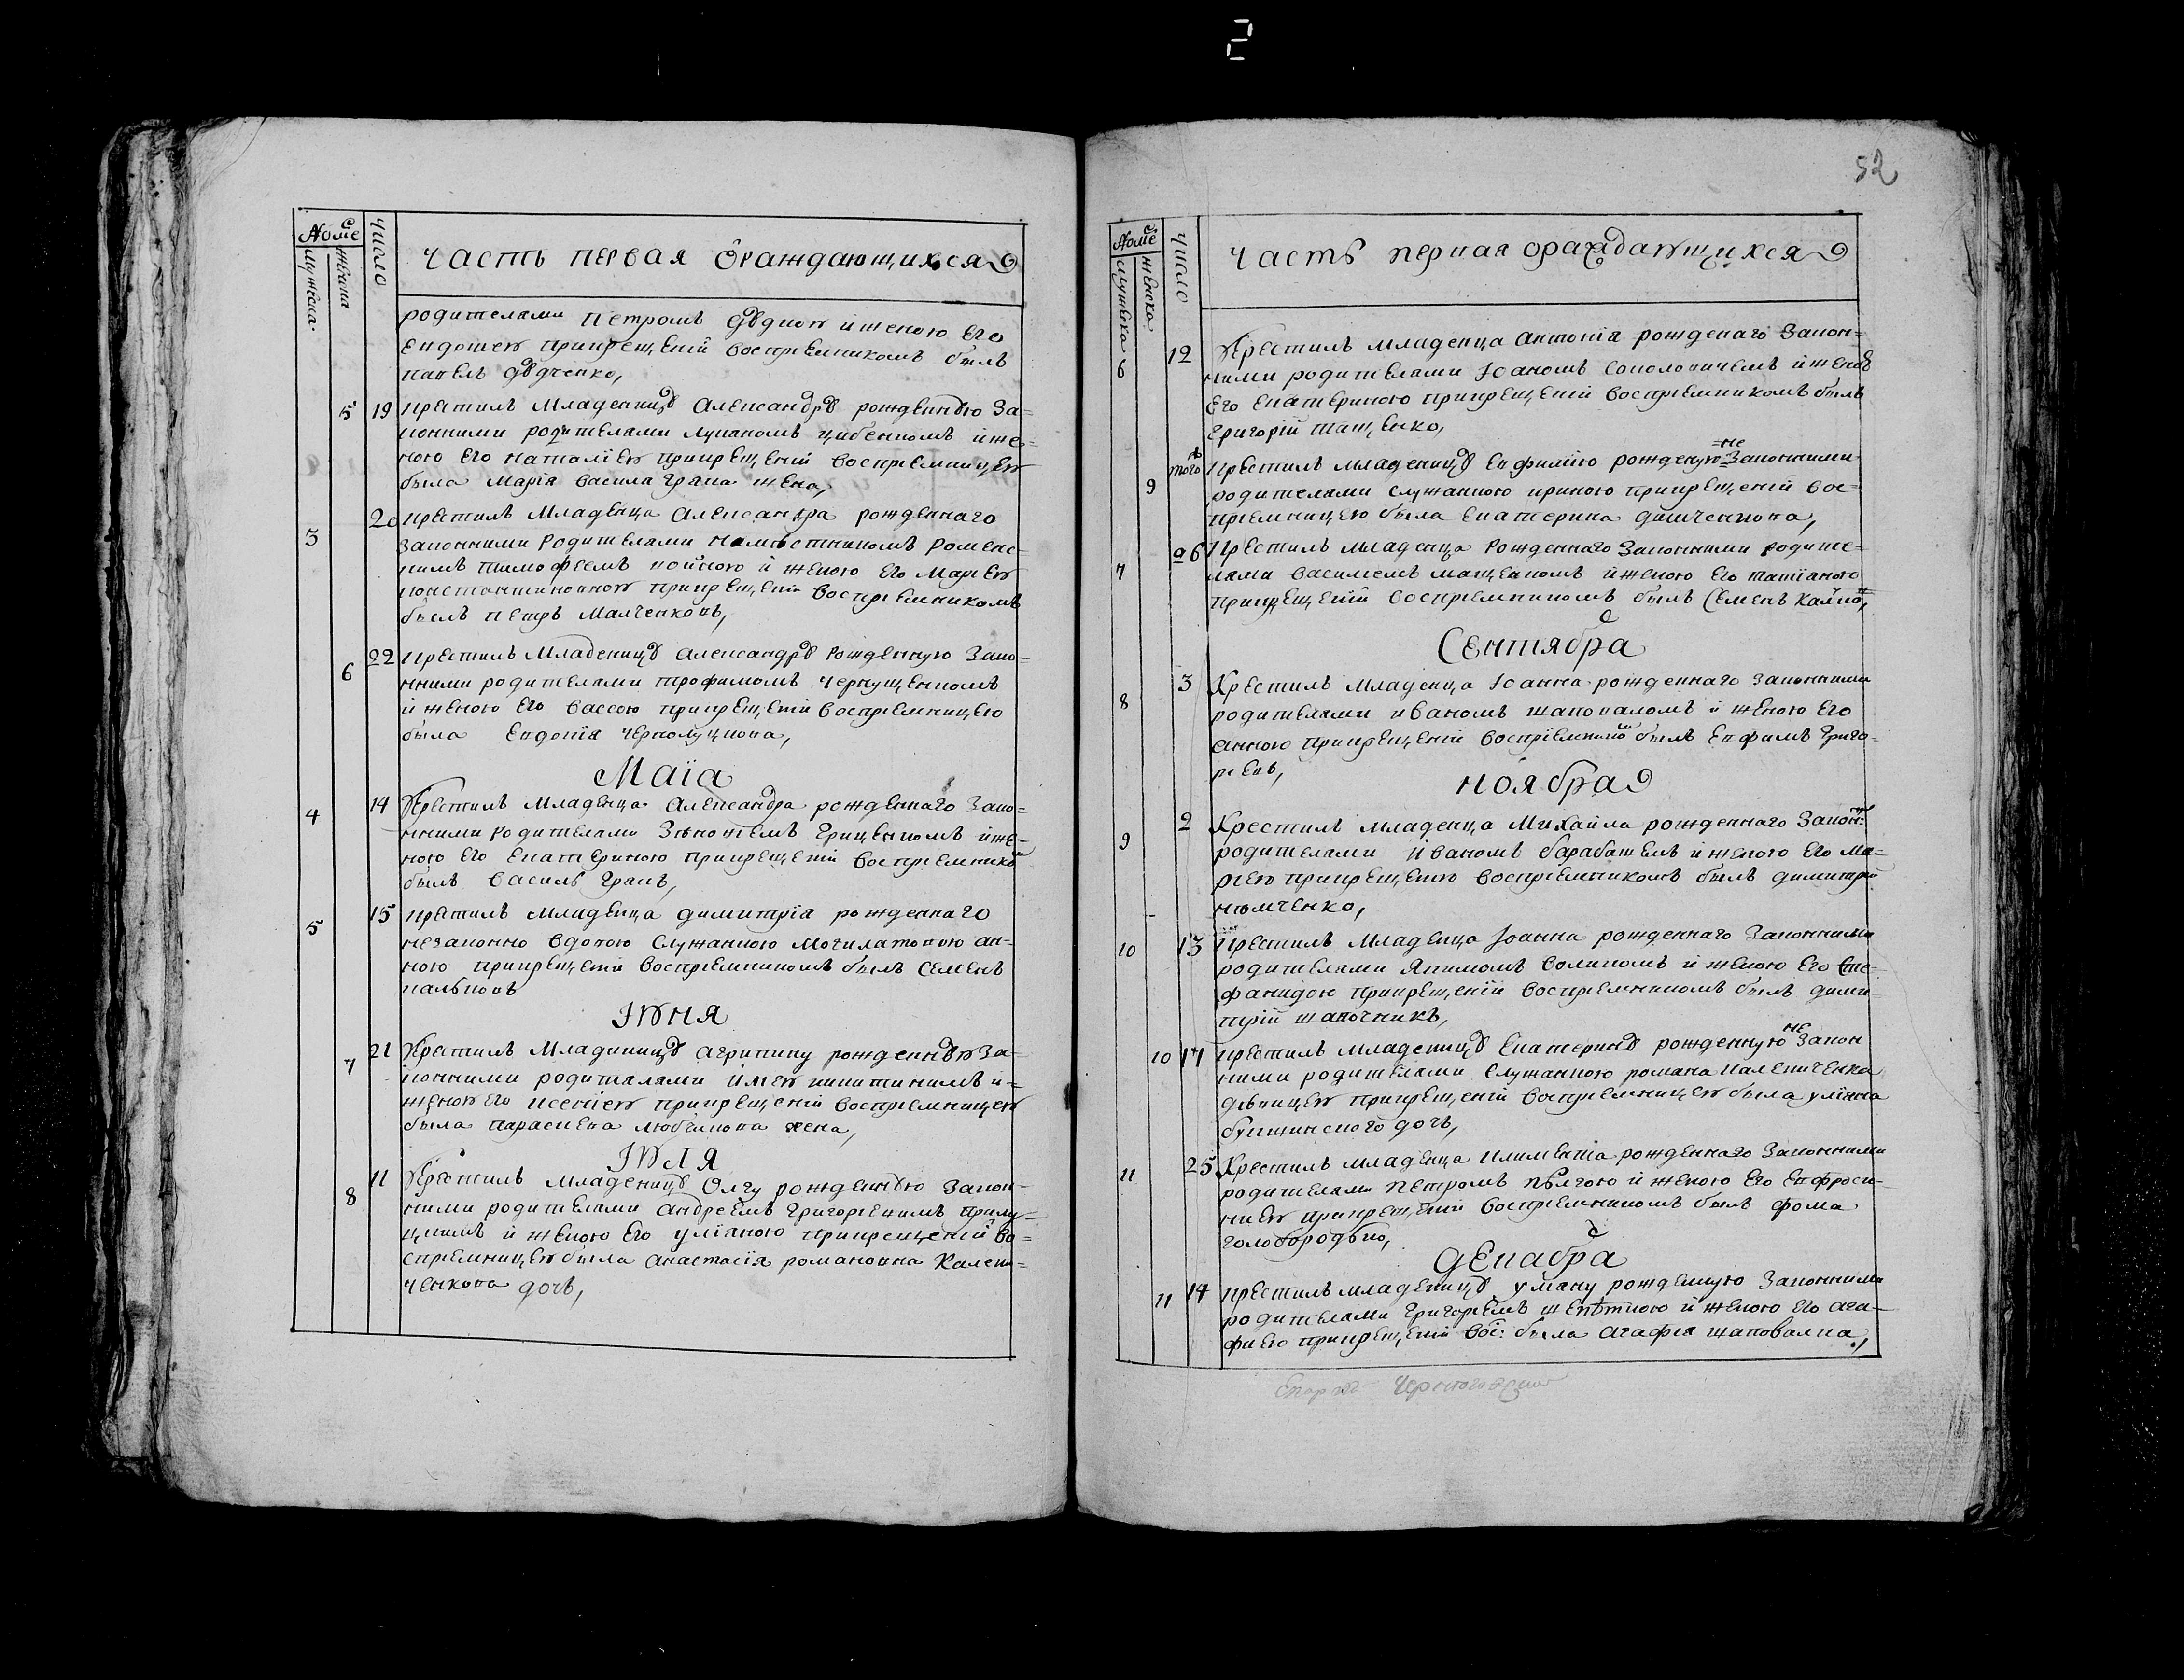 2
52
Номе
мужеска.
женска
число
часть первая ораждающихся
родителами Петромъ дѣдног и женою Его
Евдокиею при крещеніи воспріемникомъ былъ
павелъ дѣдченко,
5 19 крестилъ Младеницу Александру рожденную За-
конними родителами лукаономъ цибенкомъ и же-
ною Его Наталіею при крещеніи воспріемницею
была Марія Василя Грака жена,
3 20 крестилъ Младенца Александра рожденнаго
законними Родителами намѣстникомъ роменс-
кимъ тимофеемъ и женою Его Мариею
константиновною при крещеніи воспріемникомъ
былъ петръ Малченковъ,
6 22 крестилъ Младеницу Александру Рожденную Зако-
нними родителами трофимомъ чернущенкомъ
и женою Его Вассою при крещеніи воспріемницею
была Евдокія черполуцкова,
Маіа
4 14 Крестилъ Младенца Александра рожденнаго Зако-
нними родителами Зѣновіемъ Гриценкомъ и же-
ною Его Екатериною при крещеніи воспріемникомъ
былъ Василь Гракъ,
5 15 крестилъ Младенца димитріа рожденнаго
незаконно вдовою служанкою Могилатовою ан-
ною при крещеніи воспріемникомъ былъ Семенъ
кальковъ
Іюня
7 21 Крестилъ Младиницу агрипину рожденную За-
конними родиталами никитинимъ и-
женою Его Ксениею при крещеніи воспріемницею
была параскева любимова жена,
Іюля
8 11 Крестилъ младеницу Олгу рожденную Закон-
ними родителами андреемъ Григориевимъ прилу-
цкимъ и женою Его уліаною при крещеніи во-
спріемницею была анастасія романовна Калени-
ченкова дочь,
Номе
мушеска
женска.
число
часть первая ораждающихся
6 12 Крестилъ младенца антоніа рожденаго Закон-
ними родителами Іоаномъ соколовичемъ и женою
Его Екатериною при крещеніи воспріемникомъ былъ
григорій тащенко,
9 того Крестилъ младеницу Евфимію рожденую не Законними
родителами служанкою ириною при крещеніи вос-
пріемницею была Екатерина дашченкова,
7 26 Крестилъ младенца Рожденнаго Законними родите-
лами василемъ мащенкомъ и женою Его татіаною
при крещеніи воспріемникомъ былъ Семенъ
Сентября
8 3 Крестилъ младенца Іоанна рожденнаго законними
родителами иваномъ шаповаломъ и женою Его
анною при крещеніи воспріемникомъ былъ Евфимъ Григо-
риевъ,
ноября
9 2 Крестилъ младенца Михаила рожденнаго Закон:
родителами иваномъ барабашемъ и женою Его Ма-
риею при крещению воспріемникомъ былъ димитрій
нѣмченко,
10 13 Крестилъ Младенца Іоанна рожденнаго Законними
родителами Якимомъ воликомъ и женою Его Сте-
фанидою при крещеніи воспріемникомъ былъ дими-
трій шапочникъ,
10 17 крестилъ младеницу Екатерину рожденную не Закон
ними родителами служанкою романа каленичента
дѣвицею при крещеніи воспріемницею была уліяна
дочь,
11 25 Крестилъ младенца климента рожденнаго Законними
родителами Петромъ пѣлгою и женою Его Евфроси-
ниею при крещеніи воспріемникомъ былъ фома
голобородько,
декабра
11 14 крестилъ младеницу улиану рожденную Законними
родителами Григориемъ и женою Его ага-
фиею при крещеніи вос: была агафіа шаповалка,